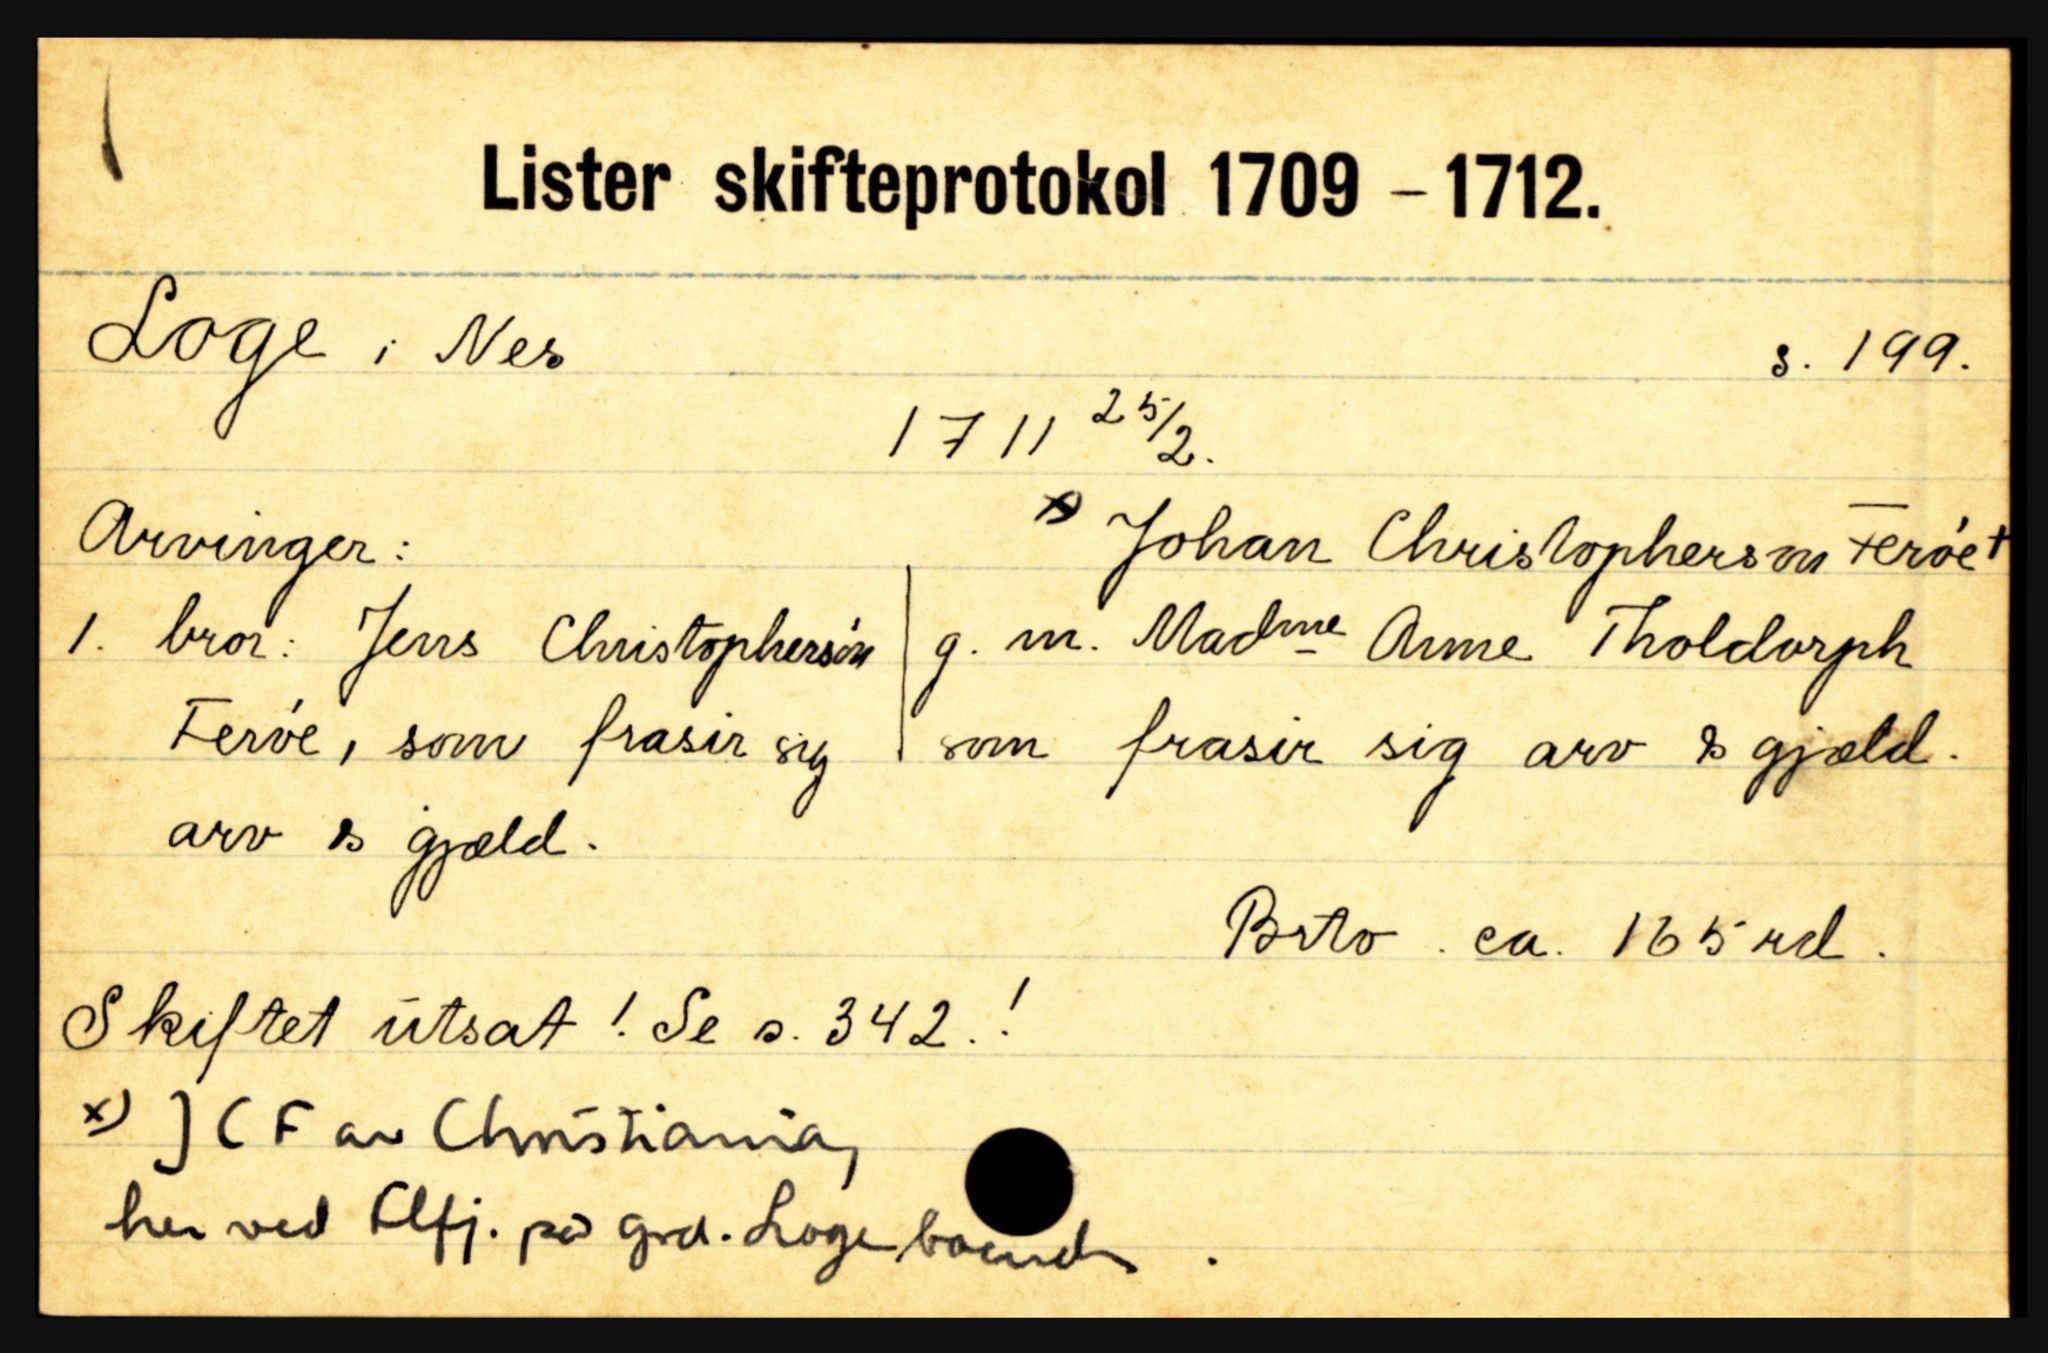 Lister skifteprotokol 1709 – 1712.
Loge i Nes s. 199.
1711 25/2.
Arvinger: x) Johan Christophersøn Feröe +
1. bror: Jens Christophersøn g. m. Madme Anne Tholdorph
Feröe, som frasir sig som frasir sig arv & gjæld.
arv & gjæld.
Brto. ca. 165 rd.
Skiftet utsat! Se s. 342.!
x) J C F av Christiania,
her ved Flfj. på grd. Loge boende.